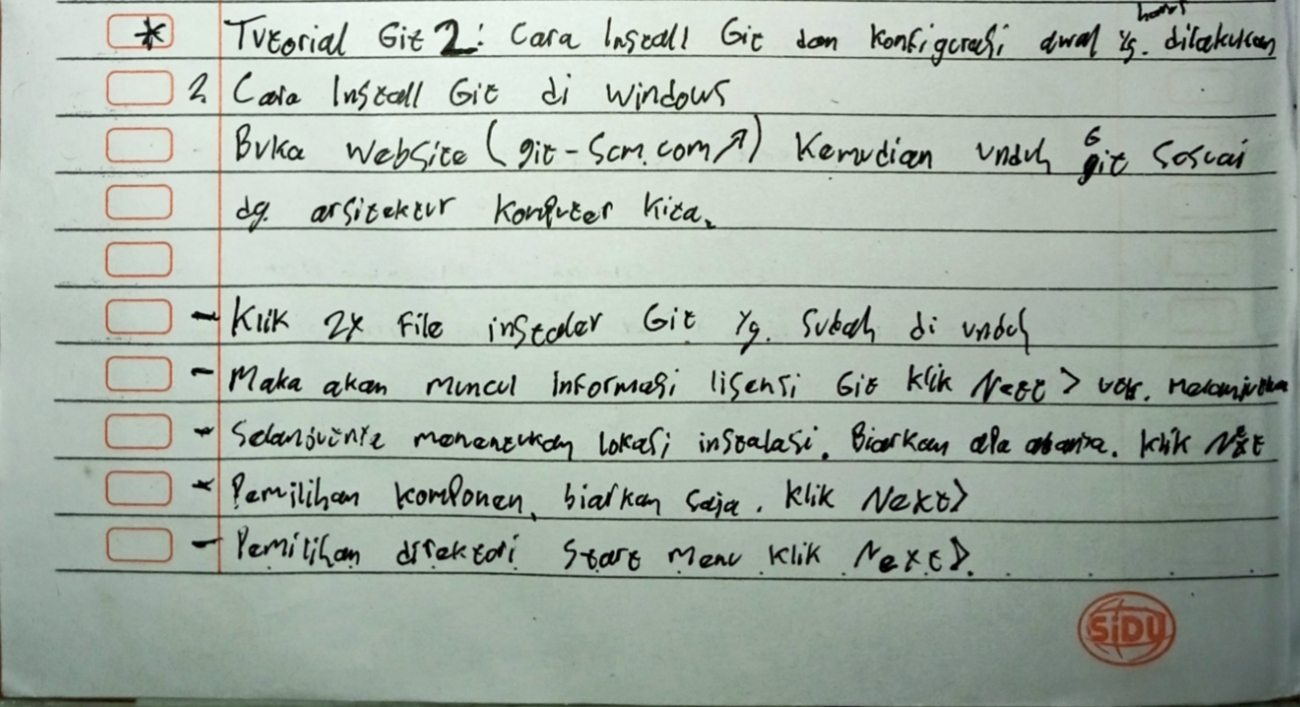 * Tutorial Git 2: Cara Install Git dan Konfigurasi awal yg. harus dilakukan
2 Cara Install Git di Windows
Buka Website (git-scm.com↗) Kemudian unduh Git sesuai
dg. arsitektur komputer kita.
- Klik 2x File instaler Git yg. sudah di unduh
- Maka akan muncul informasi lisensi Git klik Next > utk. melanjutkan
- Selanjutnya menentukan lokasi instalasi. Biarkan apa adanya. klik Next
- Pemilihan komponen, biarkan saja. klik Next>
- Pemilihan direktori Start Menu klik Next>.
SiDU